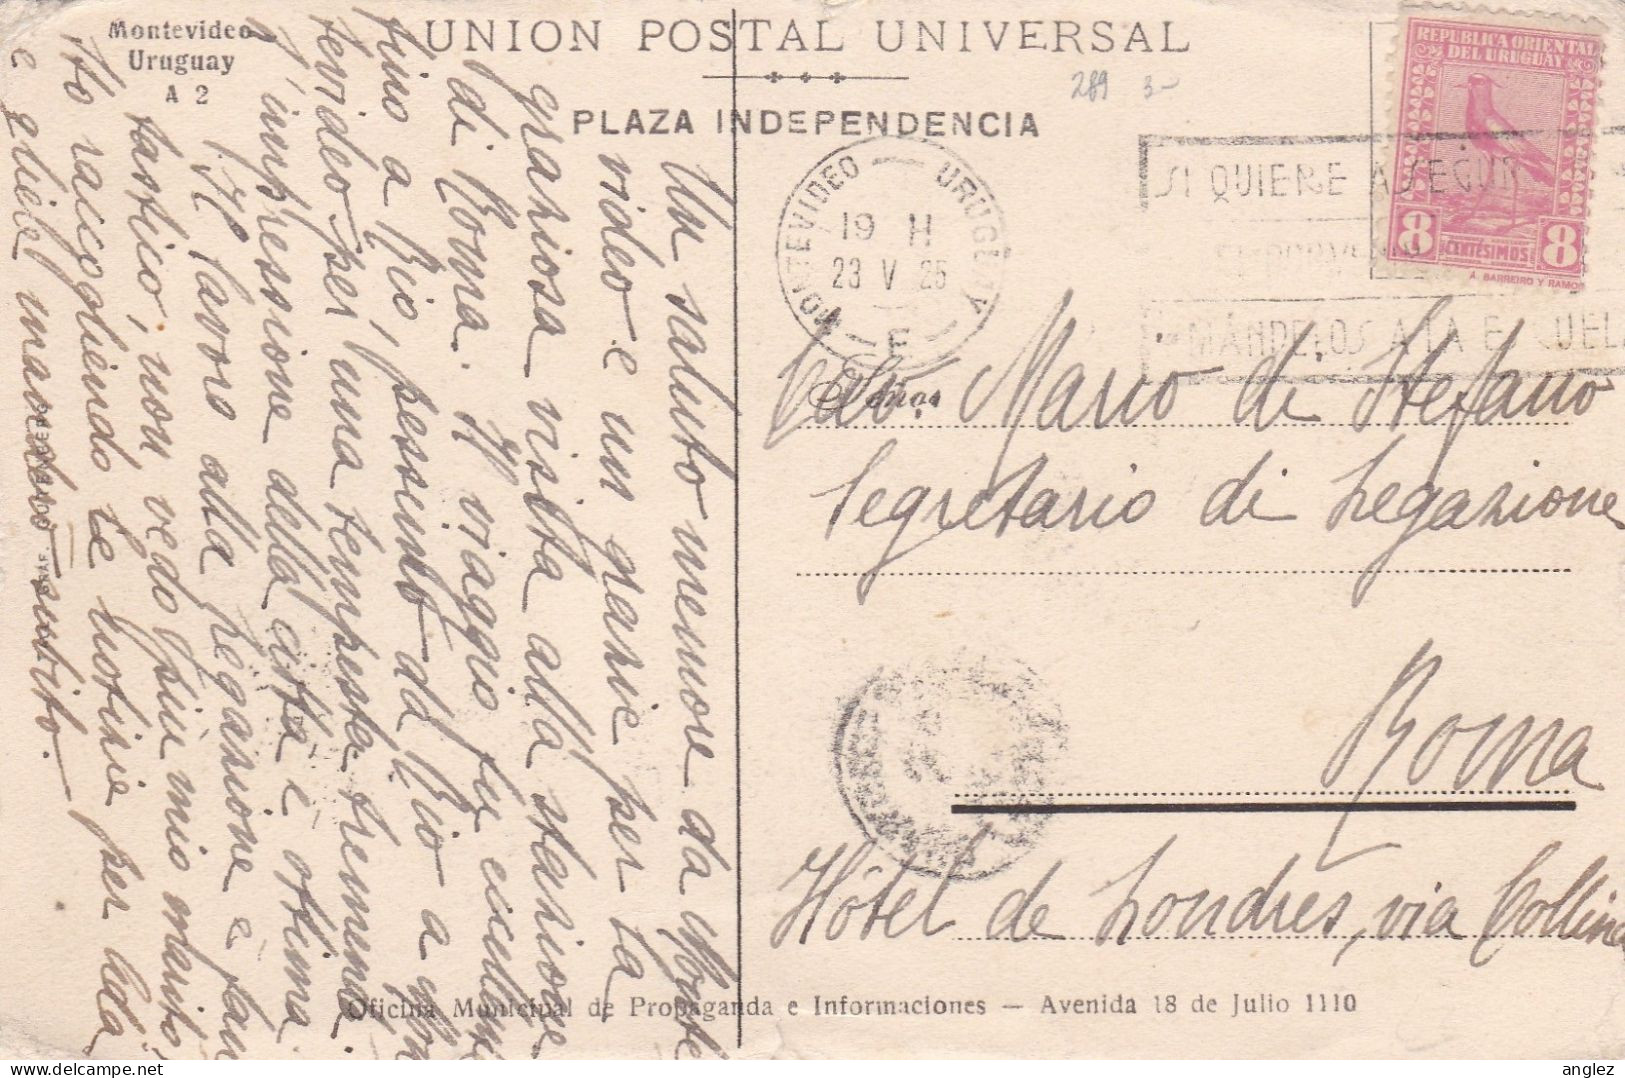 Montevideo
Uruguay
A 2
UNION POSTAL UNIVERSAL
PLAZA INDEPENDENCIA
289 3-
REPUBLICA ORIENTAL
DEL URUGUAY
8 CENTÉSIMOS 8
A. BARREIRO Y RAMOS
MONTEVIDEO — URUGUAY
19 H
23 V 25
E
SI QUIERE ASEGUR
MÁNDELOS A LA ESCUELA
Cav. Mario di Stefano
Segretario di Legazione
Roma
Hôtel de Londres, via Collina
Un saluto memore da Monte
video e un grazie per la
graziosa visita alla stazione
di Roma. Il viaggio fu eccellente
fino a Rio, pessimo da Rio a Mon
tevideo per una tempesta tremenda.
L'impressione della città è ottima.
Il lavoro alla Legazione è fan
tastico, non vedo più mio marito,
Sto raccogliendo le notizie per
e gliele manderò subito.
Oficina Municipal de Propaganda e Informaciones — Avenida 18 de Julio 1110